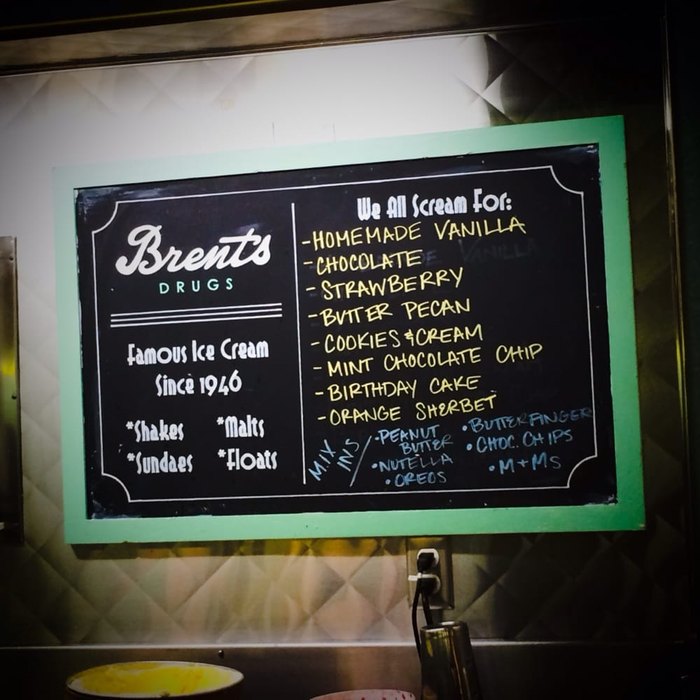 Brent's
DRUGS
Famous Ice Cream
Since 1946
*Shakes *Malts
*Sundaes *Floats
We All Scream For:
- HOMEMADE VANILLA
- CHOCOLATE
- STRAWBERRY
- BUTTER PECAN
- COOKIES & CREAM
- MINT CHOCOLATE CHIP
- BIRTHDAY CAKE
- ORANGE SHERBET
MIX
INS
• PEANUT
BUTTER
• NUTELLA
• OREOS
• BUTTERFINGER
• CHOC. CHIPS
• M+MS